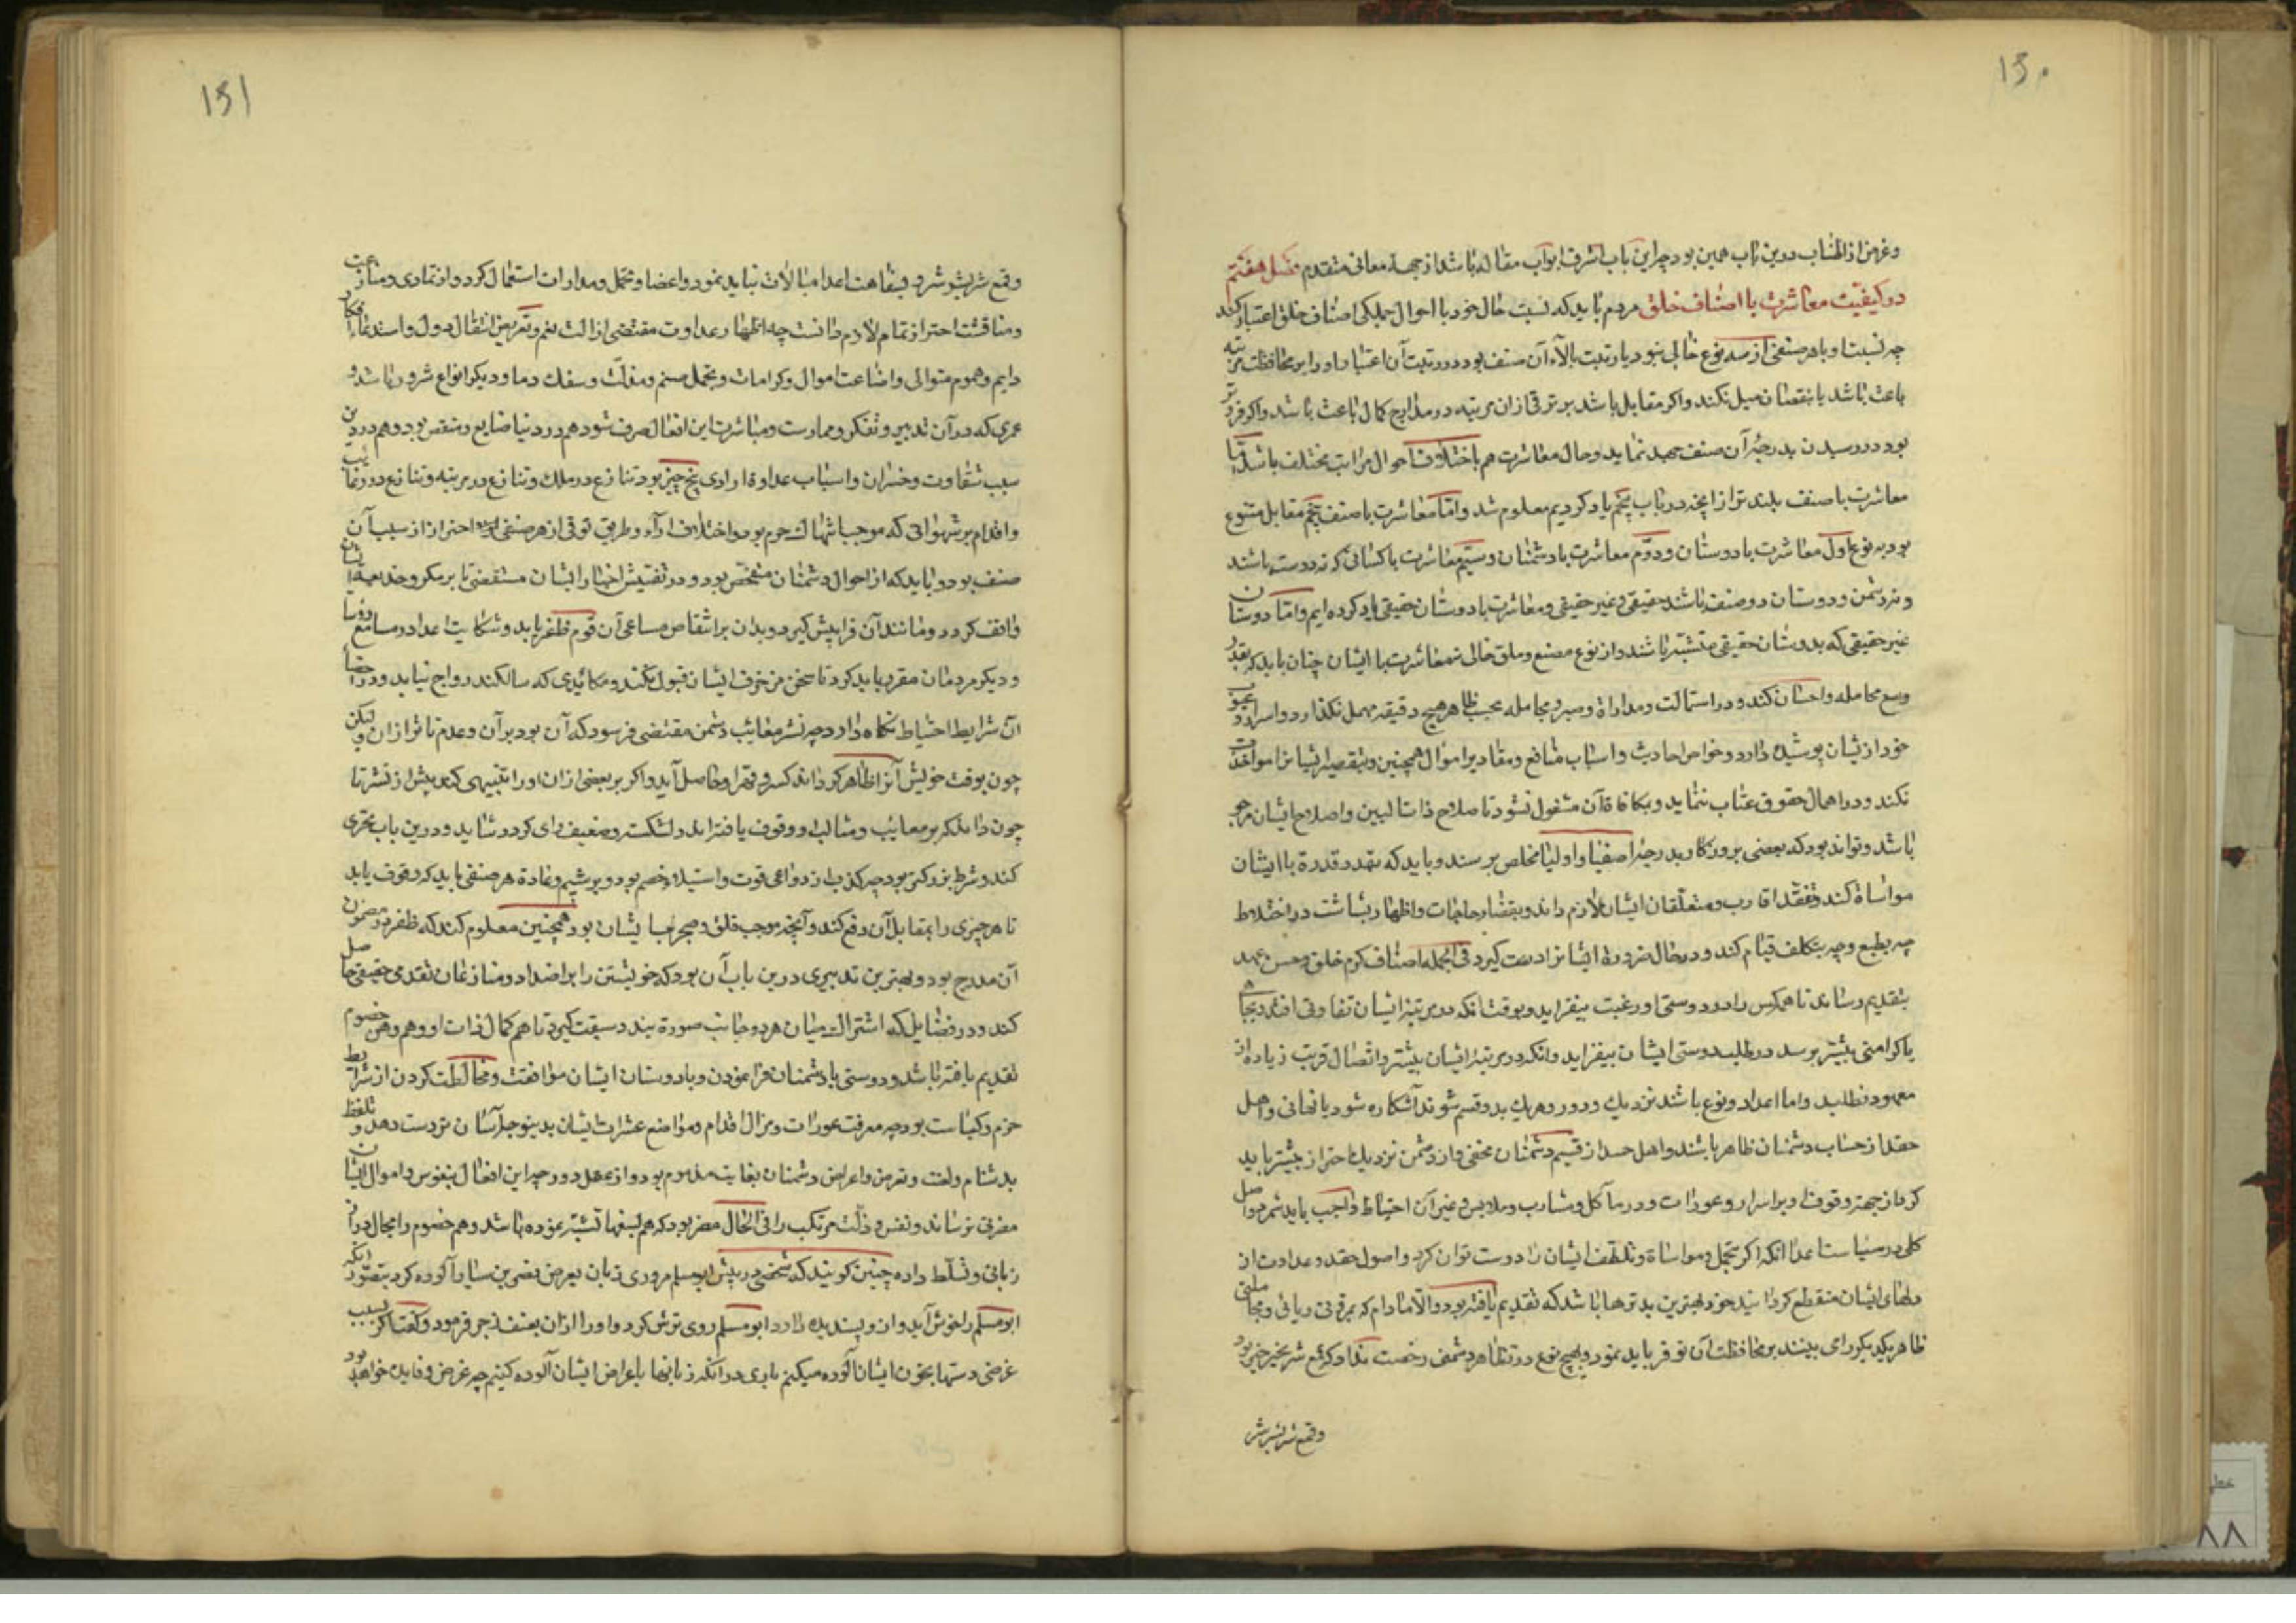 150
وغرض از اطناب درین باب همین بود چه این باب اشرف ابواب مقاله باشد از جهة معانی متقدم فصل هفتم
در کیفیت معاشرت با اصناف خلق مردم باید که نسبت حال خود با احوال جملگی اصناف خلق اعتبار کند
چه نسبت او با هر صنفی از سه نوع خالی نبود یا رتبت بالاء آن صنف بود و در رتبت آن اعتبار او را بر محافظت مرتبه
باعث باشد تا بنقصان میل نکند و اگر مقابل باشد بر ترقی ازان مرتبه در مدارج کمال باعث باشد و اگر فروتر
بود در رسیدن بدرجهٔ آن صنف جهد نماید و حال معاشرت هم باختلاف احوال مراتب مختلف باشد اما
معاشرت با صنف بلند تر از آنچه در باب پنجم یاد کردیم معلوم شد و اما معاشرت با صنف مقابل متنوع
بود به نوع اول معاشرت با دوستان و دوم معاشرت با دشمنان و سیم معاشرت با کسانی که نه دوست باشند
و نه دشمن و دوستان دو صنف باشند حقیقی و غیر حقیقی و معاشرت با دوستان حقیقی یاد کرده ایم و اما دوستان
غیر حقیقی که بدوستان حقیقی متشبه باشند و از نوع تصنع و ملق خالی نه معاشرت با ایشان چنان باید که بقدر
وسع مجامله و احسان کند و در استمالت و مداراة و صبر و مجامله بحسب ظاهر هیچ دقیقه مهمل نگذارد و اسرار و عیوب
خود از یشان پوشیده دارد و خواص احادیث و اسباب منافع و مقادیر اموال همچنین و بتقصیر ایشانرا مواخذت
نکند و در اهمال حقوق عتاب ننماید و بمکافاة آن مشغول نشود تا صلاح ذات البین و اصلاح ایشان مرجو
باشد و تواند بود که بعضی بروزگار بدرجهٔ اصفیا و اولیا مخلص برسند و باید که بقدر قدرة با ایشان
مواساة کند و تفقد اقارب و متعلقان ایشان لازم داند و بقضاء حاجات و اظهار بشاشت در اختلاط
چه بطبع و چه بتکلف قیام کند و در حال ضرورة ایشانرا دست گیرد فی الجمله اصناف کرم خلق و حسن عهد
بتقدیم رساند تا همگنان را در دوستی او رغبت بیفزاید و بوقت آنکه در مرتبهٔ ایشان تفاوتی افتد و بجاه
یا کرامتی بیشتر برسد در طلب دوستی ایشان بیفزاید و آنکه در مرتبهٔ ایشان بیشتر و اتصال قربت زیاده از
معهود نطلبد و اما اعدا دو نوع باشند نزدیک و دور و هر یک بدو قسم شوند آشکاره شود یا نهانی و اهل
حقد از حساب دشمنان ظاهر باشند و اهل حسد از قسیم دشمنان مخفی و از دشمن نزدیک احتراز بیشتر باید
کرد از جهة وقوف او بر اسرار و عورات و در مآکل و مشارب و ملابس و غیر آن احتیاط واجب باید شمرد و اصل
کلی در سیاست اعدا آنکه اگر بتحمل و مواساة و تلطف ایشان را دوست توان کرد و اصول حقد و عداوت از
دلهای ایشان منقطع گردانید خود بهترین تدبیرها باشد که تقدیم یافته بود و الا مادام که بمروتی و ریائی و مجاملتی
ظاهر یکدیگر را می بینند بر محافظت آن توفر باید نمود و بهیچ نوع در تظاهر دشمنی رخصت نداد که دفع شر بخیر خیر بود
وقمع شر بشر شر
151
وقمع شر بشر شر و بسفاهت اعدا مبالات نباید نمود و اغضا و تحمل و مدارات استعمال کرد و از تمادی و منازعت
و مناقشت احتراز تمام لازم دانست چه اظهار عداوت مقتضی ازالت نعم و تعرض انتقال دول و استدعاء افکار
دایم و هموم متوالی و اضاعت اموال و کرامات و تحمل ستم و مذلت و سفک دما و دیگر انواع شرور باشد و
عمری که در آن تدبیر و تفکر و ممارست و مباشرت این افعال صرف شود هم در دنیا ضایع و منقص بود و هم در دین
سبب شقاوت و خسران و اسباب عداوة ارادی پنج چیز بود تنازع در ملک و تنازع در مرتبه و تنازع در رغایب
و اقدام بر شهواتی که موجب انتهاک حرم بود و اختلاف آراء و طریق توقی از هر صنفی احتراز از سبب آن
صنف بود و باید که از احوال دشمنان متفحص بود و در تفتیش اخبار ایشان مستقصی تا بر مکر و خدیعت ایشان
واقف گردد و مانند آن فرا پیش گیرد و بدان بر انتقاص مساعی آن قوم ظفر یابد و شکایت اعدا در مسامع رؤسا
و دیگر مردمان مقرر باید کرد تا سخن مزخرف ایشان قبول نکنند و مکائدی که سالکند رواج نیابد و در احصاء
آن شرایط احتیاط نگاه دارد چه نشر معائب دشمن مقتضی فرسودگی آن بود بر آن و عدم تاثر ازان و لیکن
چون بوقت خویش آنرا ظاهر گرداند کسر و قهر او حاصل آید و اگر بر بعضی ازان او را تنبیهی کند پیش از نشر تا
چون داند که بر معایب و مثالب او وقوف یافته اند دل شکسته و ضعیف رای گردد شاید و درین باب تحری
کند و شرط بزرگتر بود چه کذب از دواعی قوت و استیلاء خصم بود و بر شیم و عادة هر صنفی باید که وقوف یابد
تا هر چیزی را بمقابل آن دفع کند و آنچه موجب قلق و ضجرة ایشان بود همچنین معلوم کند که ظفر در مضمون
آن مدرج بود و بهترین تدبیری درین باب آن بود که خویشتن را بر اضداد و منازعان تقدمی حقیقی حاصل
کند و در فضایل که اشتراک میان هر دو جانب صورة بندد سبقت گیرد تا هم کمال ذات او و هم وهن خصوم
تقدیم یافته باشد و دوستی با دشمنان فرا نمودن و با دوستان ایشان موافقت و مخالطت کردن از شرایط
حزم و کیاست بود چه معرفت عورات و مزال اقدام و مواضع عثرات ایشان بدینوجه آسان تر دست دهد و تلفظ
بدشنام و لعنت و تعرض و اعراض دشمنان بغایت مذموم بود و از عقل دور چه این افعال بنفوس و اموال ایشان
مضرتی نرساند و نفس و ذلت مرتکب را فی الحال مضر بود که هم بسفها تشبه نموده باشد و هم خصوم را مجال دراز
زبانی و تسلط داده چنین گویند که شخصی در پیش ابو مسلم مروزی زبان بعرض نصر بن سیار آلوده کرد بتصور آنکه
ابو مسلم را خوش آید و از وی پسندیده دارد ابو مسلم روی ترش کرد و او را ازان بعنف زجر فرمود و گفت اگر بسبب
غرضی دستها بخون ایشان آلوده میکنیم باری در آنکه زبانها باعراض ایشان آلوده کنیم چه غرض و فایده خواهد بود